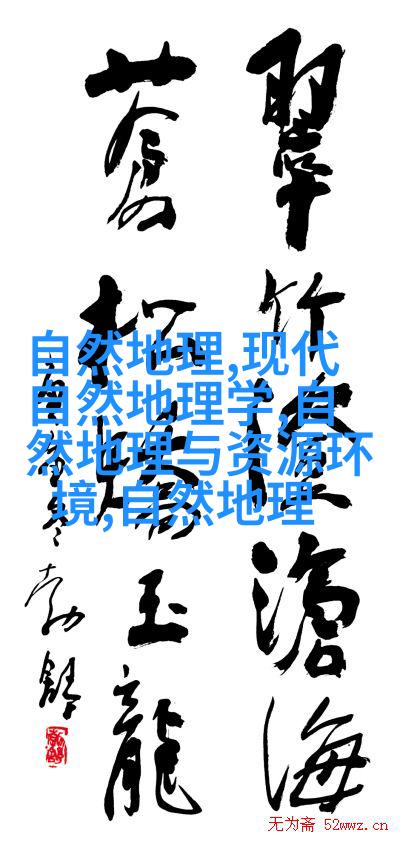 翠竹滄海
蒼松玉龍
勃舒
自然地理,现代
自然地理学,自
然地理与资源环
境,自然地理
无为斋 52wwz.cn